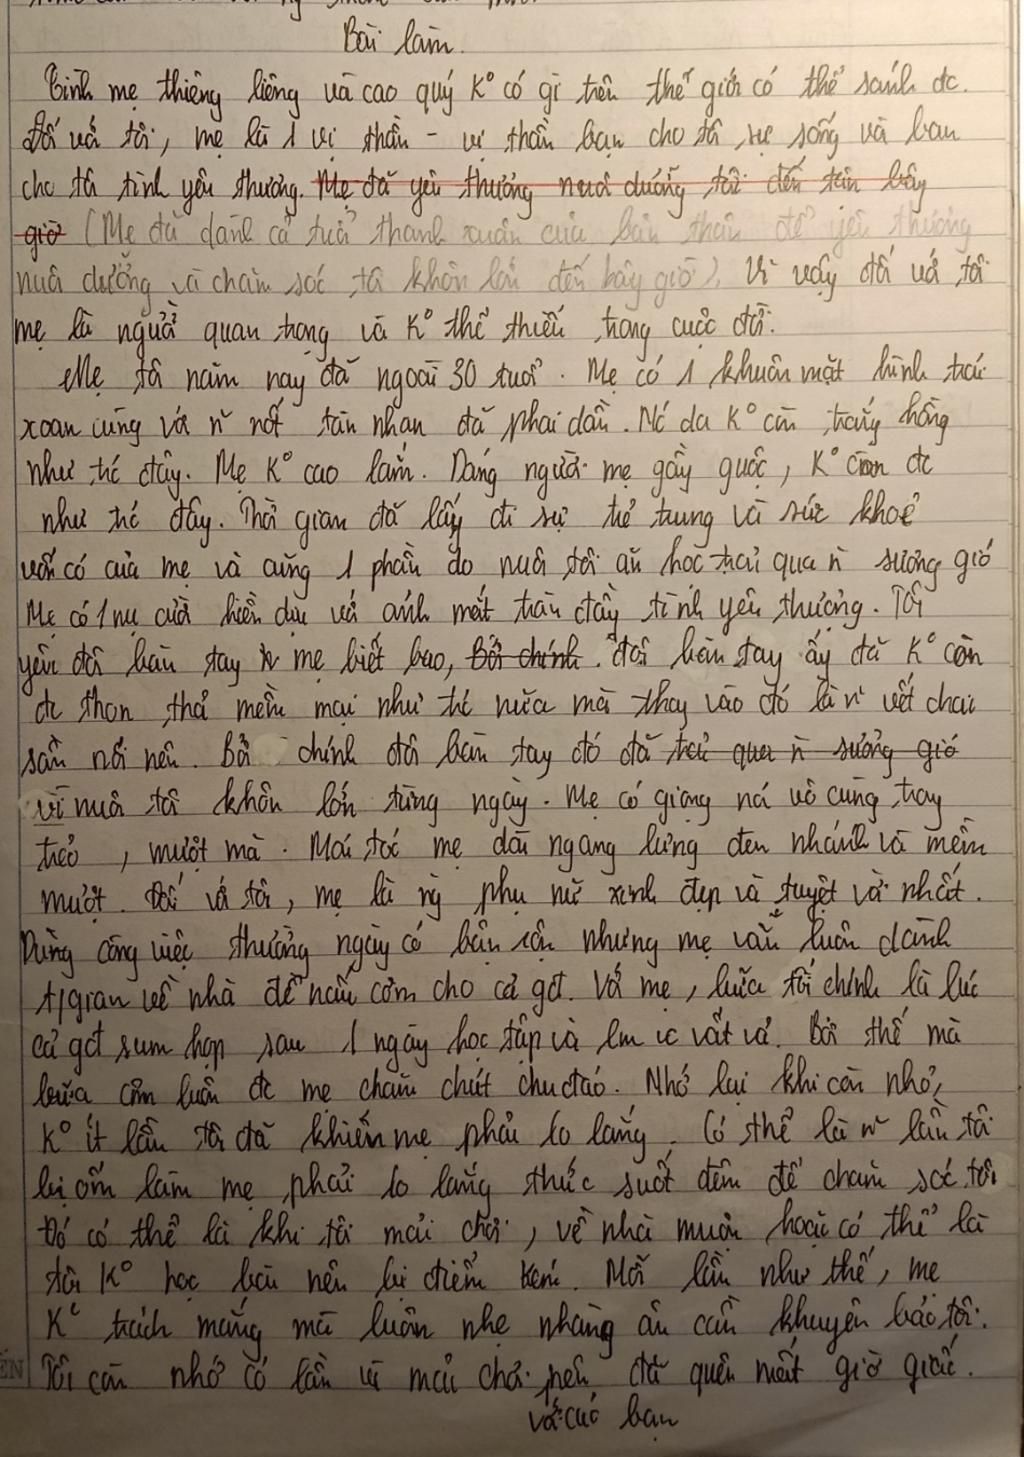 Bài làm.
Tình mẹ thiêng liêng và cao quý K° có gì trên thế giới có thể sánh đc.
Đối với tôi, mẹ là 1 vị thần - vị thần ban cho tôi sự sống và ban
cho tôi tình yêu thương. Mẹ đã yêu thương nuôi dưỡng tôi đến tận bây
giờ (Mẹ đã dành cả tuổi thanh xuân của bản thân để yêu thương
nuôi dưỡng và chăm sóc tôi khôn lớn đến bây giờ). Vì vậy đối với tôi
mẹ là người quan trọng và K° thể thiếu trong cuộc đời.
Mẹ tôi năm nay đã ngoài 30 tuổi. Mẹ có 1 khuôn mặt hình trái
xoan cùng với n~ nốt tàn nhan đã phai dần. Nó da K° còn trắng hồng
như trc đây. Mẹ K° cao lắm. Dáng người mẹ gầy guộc, K° còn đc
như trc đây. Thời gian đã lấy đi sự trẻ trung và sức khoẻ
vốn có của mẹ và cũng 1 phần do nuôi tôi ăn học trải qua n~ sương gió
Mẹ có 1 nụ cười hiền dịu và ánh mắt tràn đầy tình yêu thương. Tôi
yêu đôi bàn tay mẹ biết bao, bởi chính đôi bàn tay ấy đã K° còn
đc thon thả mềm mại như trc nữa mà thay vào đó là n~ vết chai
sần nổi nên. Bởi chính đôi bàn tay đó đã trải qua n~ sương gió
vì nuôi tôi khôn lớn từng ngày. Mẹ có giọng nói vô cùng trong
trẻo, mượt mà. Mái tóc mẹ dài ngang lưng đen nhánh và mềm
mượt. Đối với tôi, mẹ là ng phụ nữ xinh đẹp và tuyệt vời nhất.
Dùng công việc thường ngày có bận rộn nhưng mẹ vẫn luôn dành
t/gian về nhà để nấu cơm cho cả gđ. Với mẹ, bữa tối chính là lúc
cả gđ sum họp sau 1 ngày học tập và lm vc vất vả. Bởi thế mà
bữa cơm luôn đc mẹ chăm chút chu đáo. Nhớ lại khi còn nhỏ,
K° ít lần tôi đã khiến mẹ phải lo lắng. Có thể là n~ lần tôi
bị ốm làm mẹ phải lo lắng thức suốt đêm để chăm sóc tôi
Đó có thể là khi tôi mải chơi, về nhà muộn hoặc có thể là
tôi K° học bài nên bị điểm kém. Mỗi lần như thế, mẹ
K° trách mắng mà luôn nhẹ nhàng ân cần khuyên bảo tôi.
Tôi còn nhớ có lần vì mải chơi nên đã quên mất giờ giấc.
với các bạn